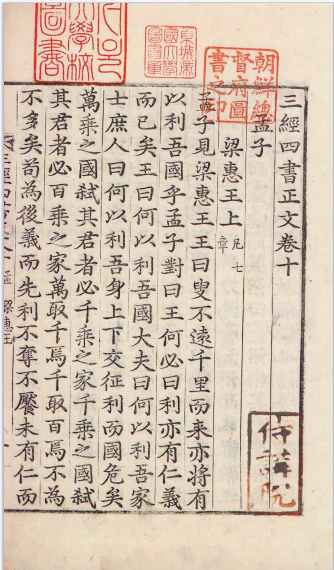 朝鮮總
督府圖
書之印
京城帝
國大學
圖書章
大學校
圖書
三經四書正文卷十
孟子
梁惠王上 凡七章
孟子見梁惠王王曰叟不遠千里而來亦將有
以利吾國乎孟子對曰王何必曰利亦有仁義
而已矣王曰何以利吾國大夫曰何以利吾家
士庶人曰何以利吾身上下交征利而國危矣
萬乘之國弒其君者必千乘之家千乘之國弒
其君者必百乘之家萬取千焉千取百焉不為
不多矣苟為後義而先利不奪不饜未有仁而
梁惠王
侍講院